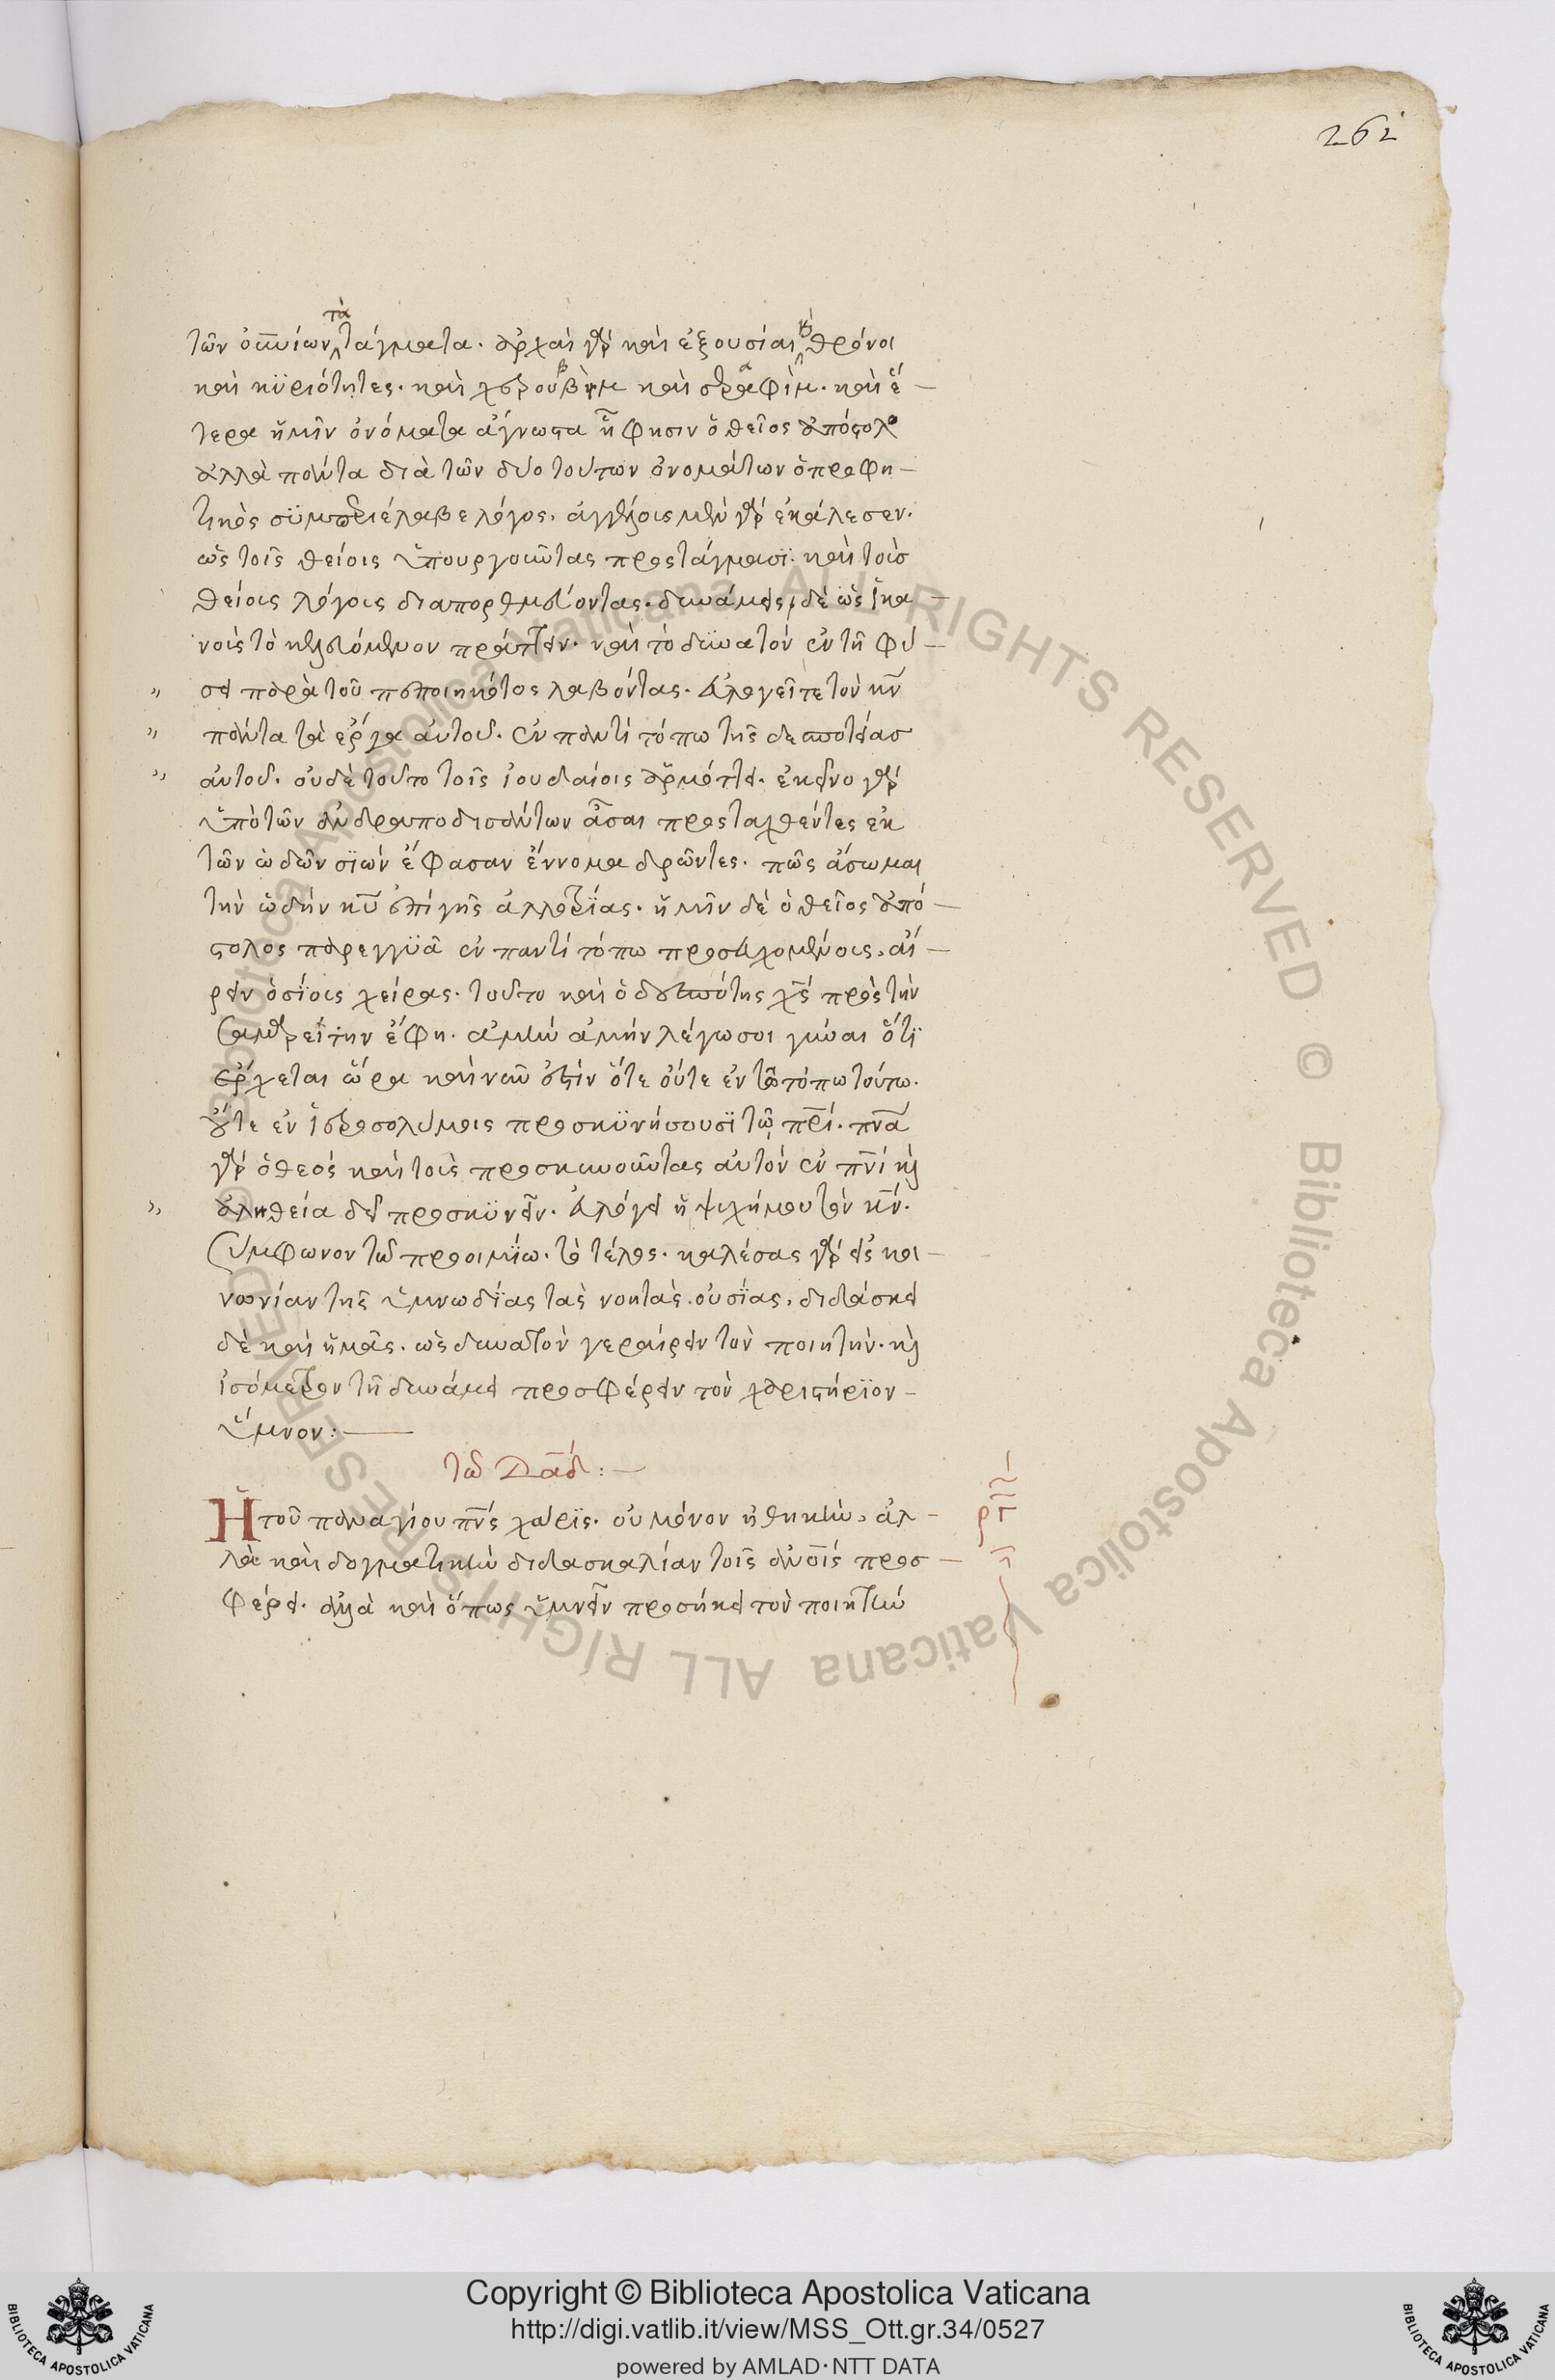 262
τὰ
τῶν οὐνίων τάγματα. ἀρχαὶ γὰρ καὶ ἐξουσίαι κ θρόνοι
καὶ κϋριότητες. καὶ χερουβὶμ καὶ σεραφὶμ. καὶ ἕ
τερα ἡμῖν ὀνόματα ἄγνωστα ἧ φησιν ὁ θεῖος ἀπόστολο
ἀλλὰ πάντα διὰ τῶν δύο τούτων ὀνομάτων ὁ προφη
τικὸς σϋμπεριέλαβε λόγος. ἀγγέλοις μὲν γὰρ ἐκάλεσεν.
ὡς τοῖς θείοις ὑπουργοῦντας προστάγμασϊ. καὶ τοὺσ
θείοις λόγοις διαπορθμεύοντας. δυνάμεις δὲ ὡς ἱκα
νοὺς τὸ κελευόμενον πράττειν. καὶ τὸ δϋνατὸν ἐν τῇ φύ
σει παρὰ τοῦ πεποιηκότος λαβόντας. εὐλογεῖτε τὸν κν
πάντα τὰ ἔργα αὐτοῦ. ἐν παντὶ τόπω τῆς δεσποτείασ
αὐτοῦ. οὐδὲ τοῦτο τοῖς ἰουδαίοις ἁρμόττει. ἐκεῖνο γὰρ
ὑπὸ τῶν ἀνδραποδισάντων ᾆσαι προσταχθέντες ἐκ
τῶν ὠδῶν σϊὼν ἔφασαν ἔννομα δρῶντες. πῶς ἄσωμαι
τὴν ὠδὴν κυ ἐπὶ γῆς ἀλλοτρίας. ἡμῖν δὲ ὁ θεῖος ἀπό
στολος παρεγγϋᾶ ἐν παντὶ τόπω προσευχομένοις. αἴ
ρειν ὁσΐοις χεῖρας. τοῦτο καὶ ὁ δεσπότης χς πρὸς τὴν
Σαμαρείτην ἔφη. ἀμὴν ἀμὴν λέγω σοι γύναι ὅτϊ
ἔρχεται ὥρα καὶ νῦν ἐστὶν ὅτε οὔτε ἐν τῷ τόπω τούτω.
οὔτε ἐν ἱεροσολύμοις προσκϋνήσουσϊ τῷ πρι. πνα
γὰρ ὁ θεὸς καὶ τοὺς προσκυνοῦντας αὐτὸν ἐν πνι κ
ἀληθεία δεῖ προσκϋνεῖν. εὐλόγει ἡ ψυχή μου τὸν κν.
Σύμφωνον τῶ προοιμίω. τὸ τέλος. καλέσας γὰρ εἰς κοι
νωνίαν τῆς ὑμνωδΐας τὰς νοητὰς οὐσΐας. διδάσκει
δὲ καὶ ἡμᾶς. ὡς δυνατὸν γεραίρειν τὸν ποιητὴν. κ
ἰσόμετρον τῇ δυνάμει προσφέρειν τὸν χαριστήρϊον
ὕμνον:
τῶ Δαδ:
Ἡ τοῦ παναγίου πνς χάρϊς. οὐ μόνον ἠθικὴν. ἀλ
λὰ καὶ δογματικὴν διδασκαλίαν τοῖς ἀνοις προσ
φέρει. ἀλλὰ καὶ ὅπως ὑμνεῖν προσήκει τὸν ποιητὴν
Copyright © Biblioteca Apostolica Vaticana
http://digi.vatlib.it/view/MSS_Ott.gr.34/0527
powered by AMLAD·NTT DATA
BIBLIOTECA APOSTOLICA VATICANA
BIBLIOTECA APOSTOLICA VATICANA
© Biblioteca Apostolica Vaticana ALL RIGHTS RESERVED © Biblioteca Apostolica Vaticana ALL RIGHTS RESERVED